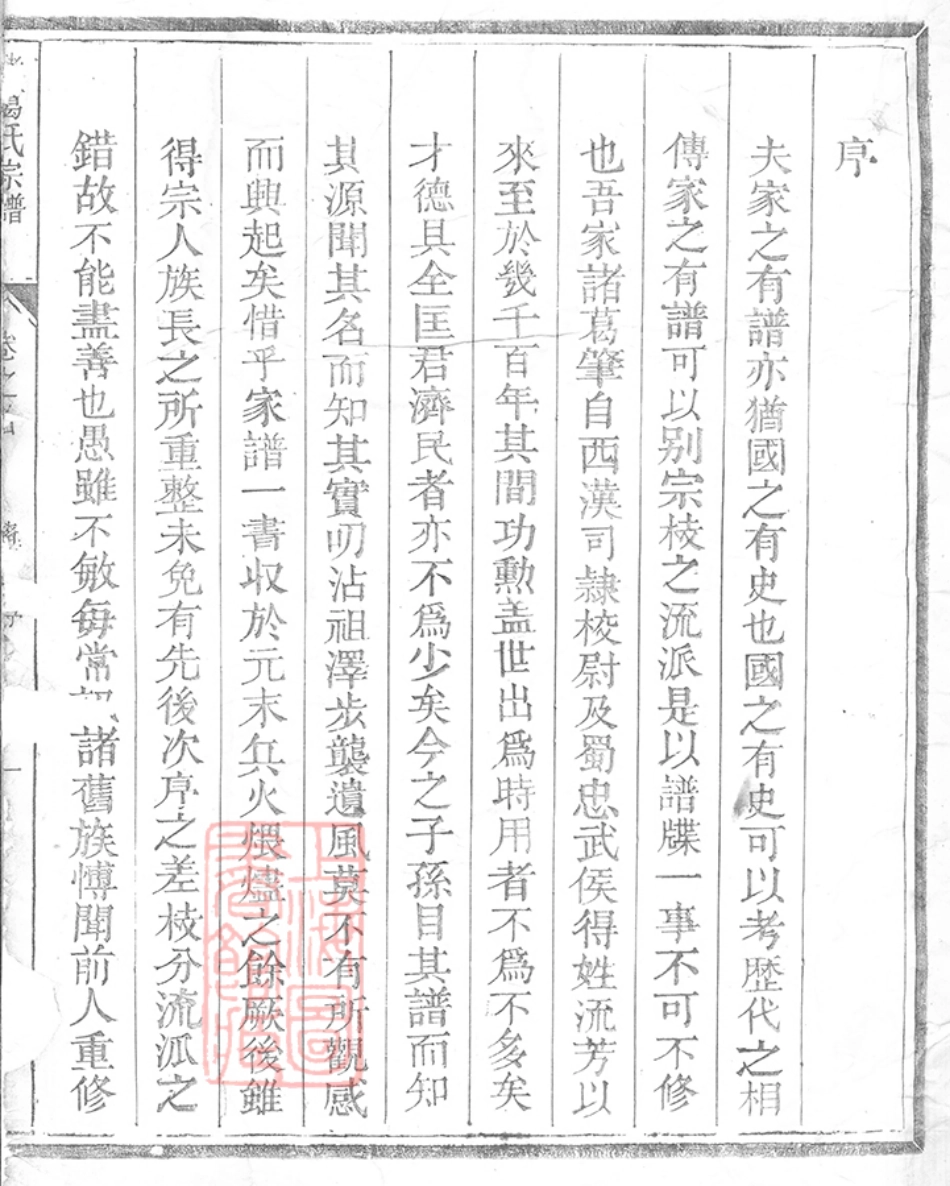 序
夫家之有譜亦猶國之有史也國之有史可以考歷代之相
傳家之有譜可以別宗枝之流派是以譜牒一事不可不修
也吾家諸葛肇自西漢司隷校尉及蜀忠武侯得姓流芳以
來至於幾千百年其間功勲盖世出爲時用者不爲不多矣
才德具全匡君濟民者亦不爲少矣今之子孫目其譜而知
其源聞其名而知其實叨沾祖澤步襲遺風莫不有所觀感
而興起矣惜乎家譜一書収於元末兵火煨燼之餘厥後雖
得宗人族長之所重整未免有先後次序之差枝分流派之
錯故不能盡善也愚雖不敏每常諸舊族愽聞前人重修
葛氏宗譜
上海圖書館藏